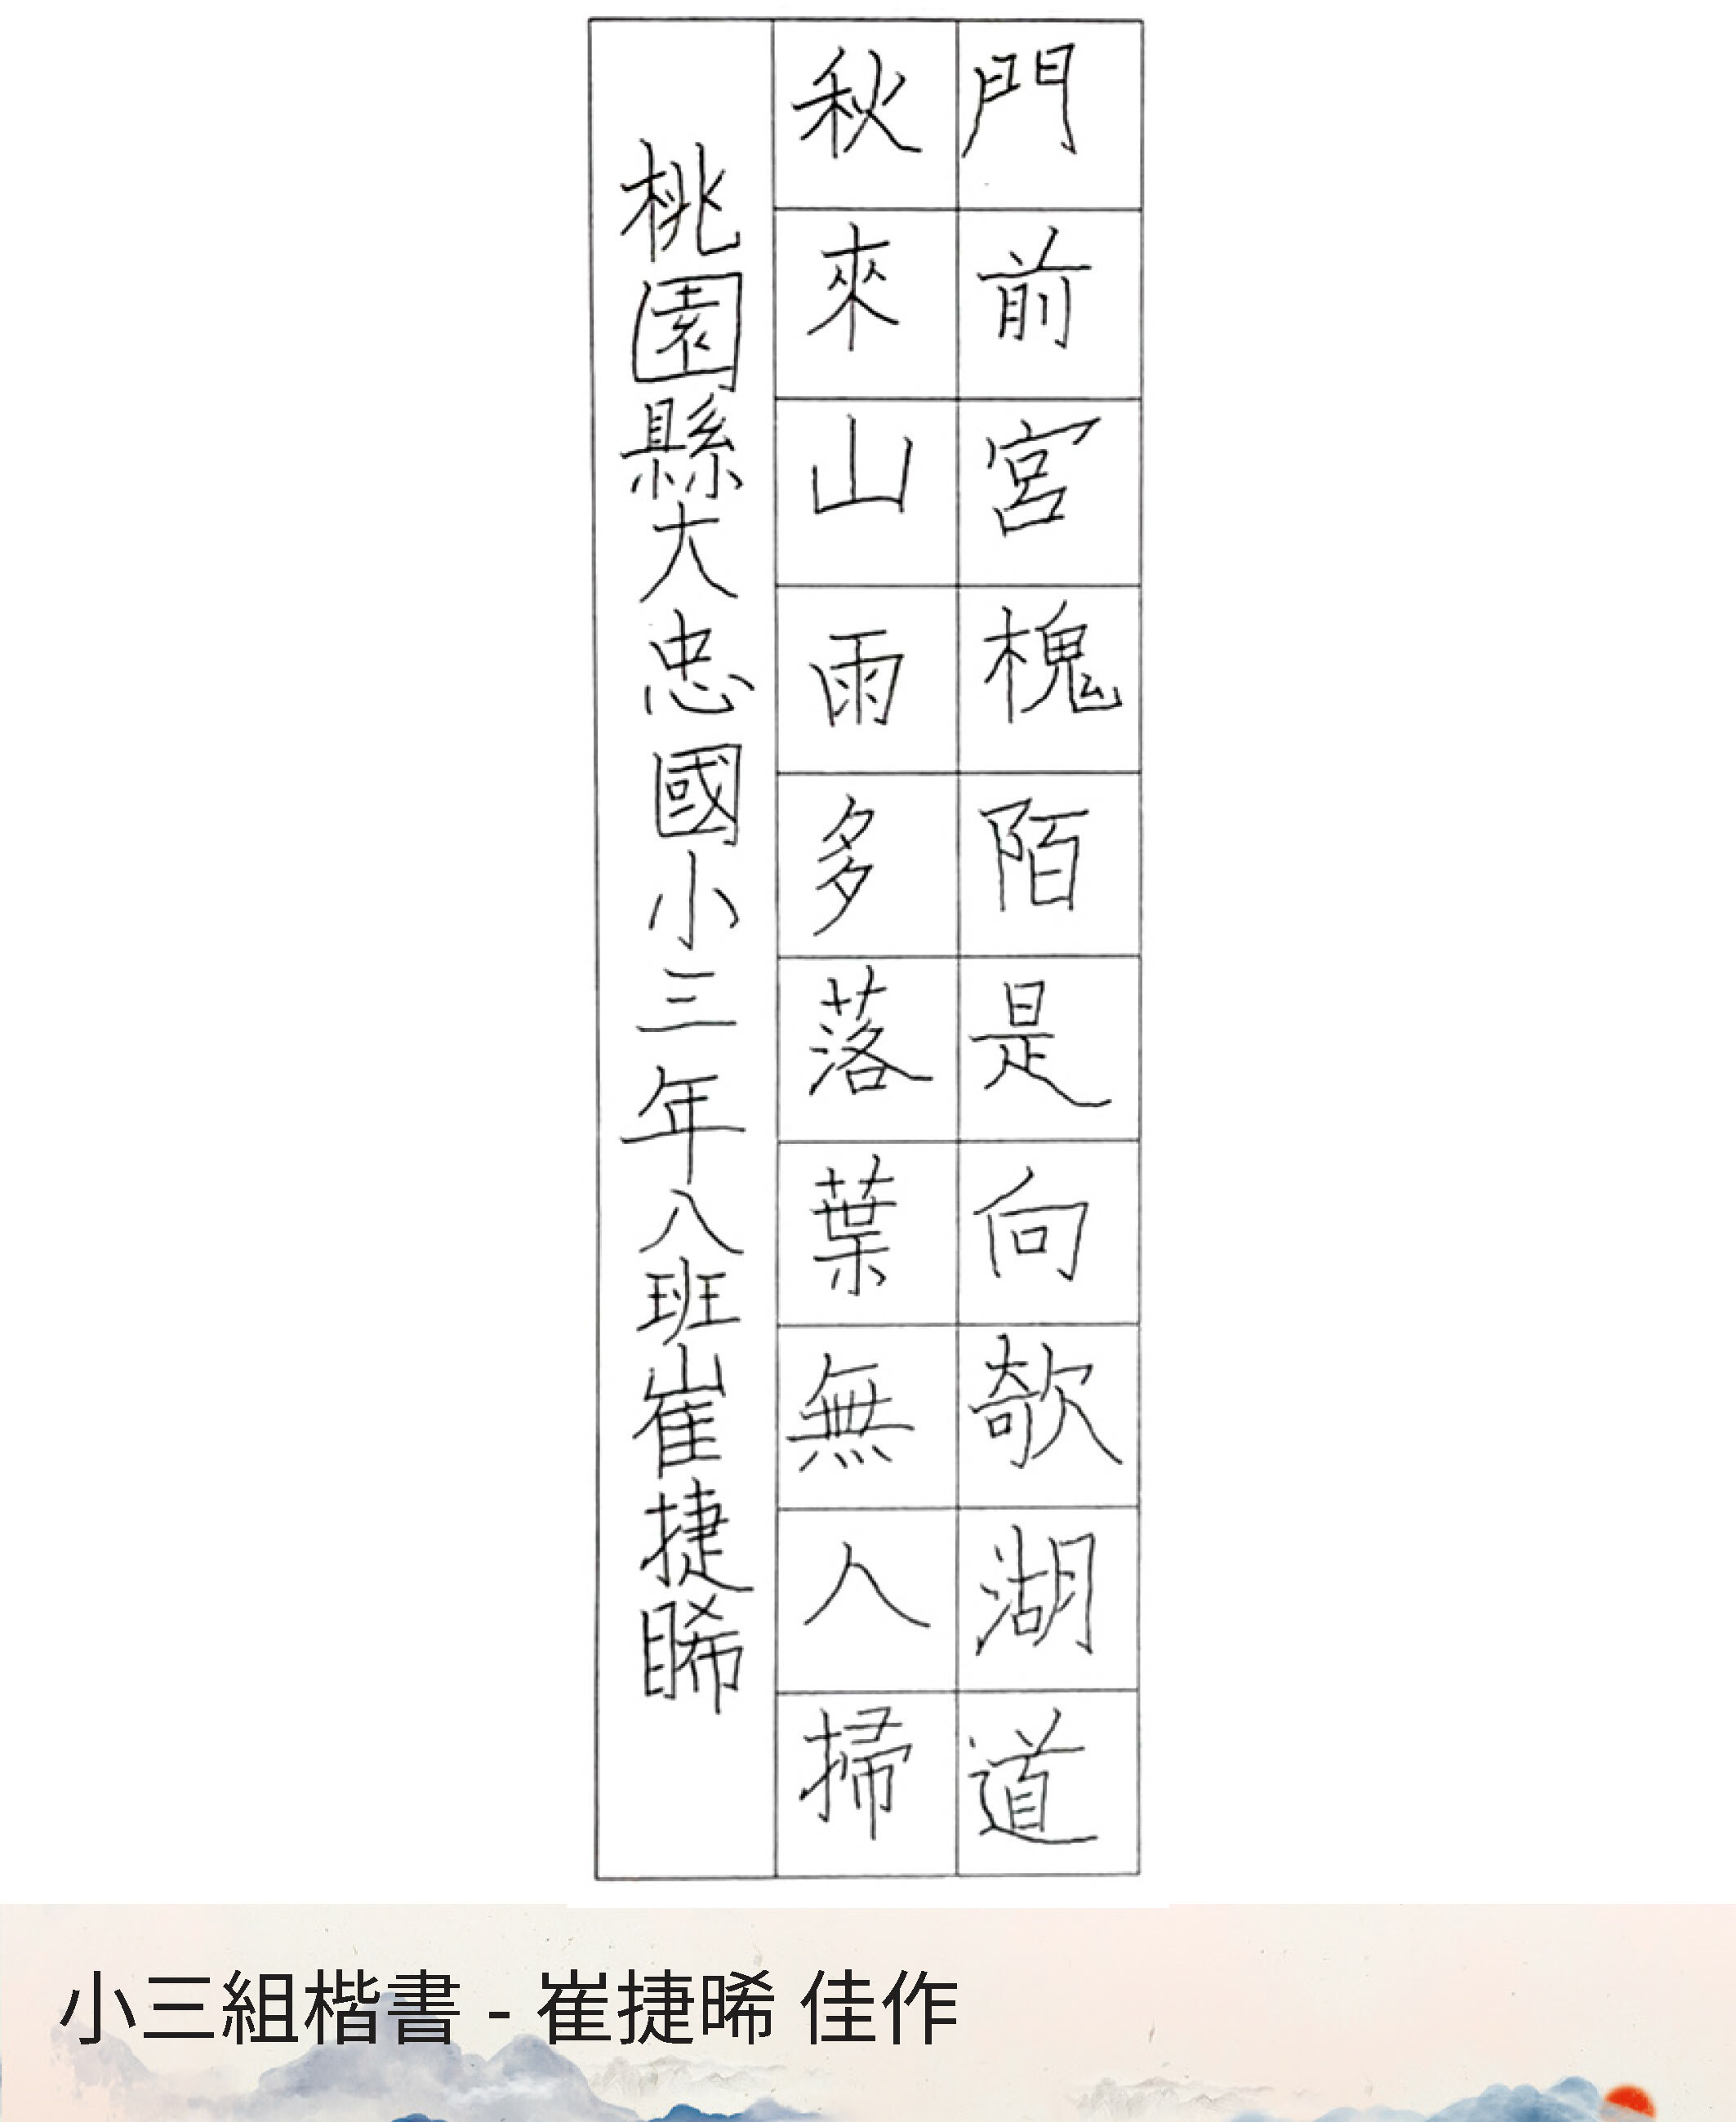 門前宮槐陌是向欹湖道
秋來山雨多落葉無人掃
桃園縣大忠國小三年八班崔捷晞
小三組楷書 - 崔捷晞 佳作